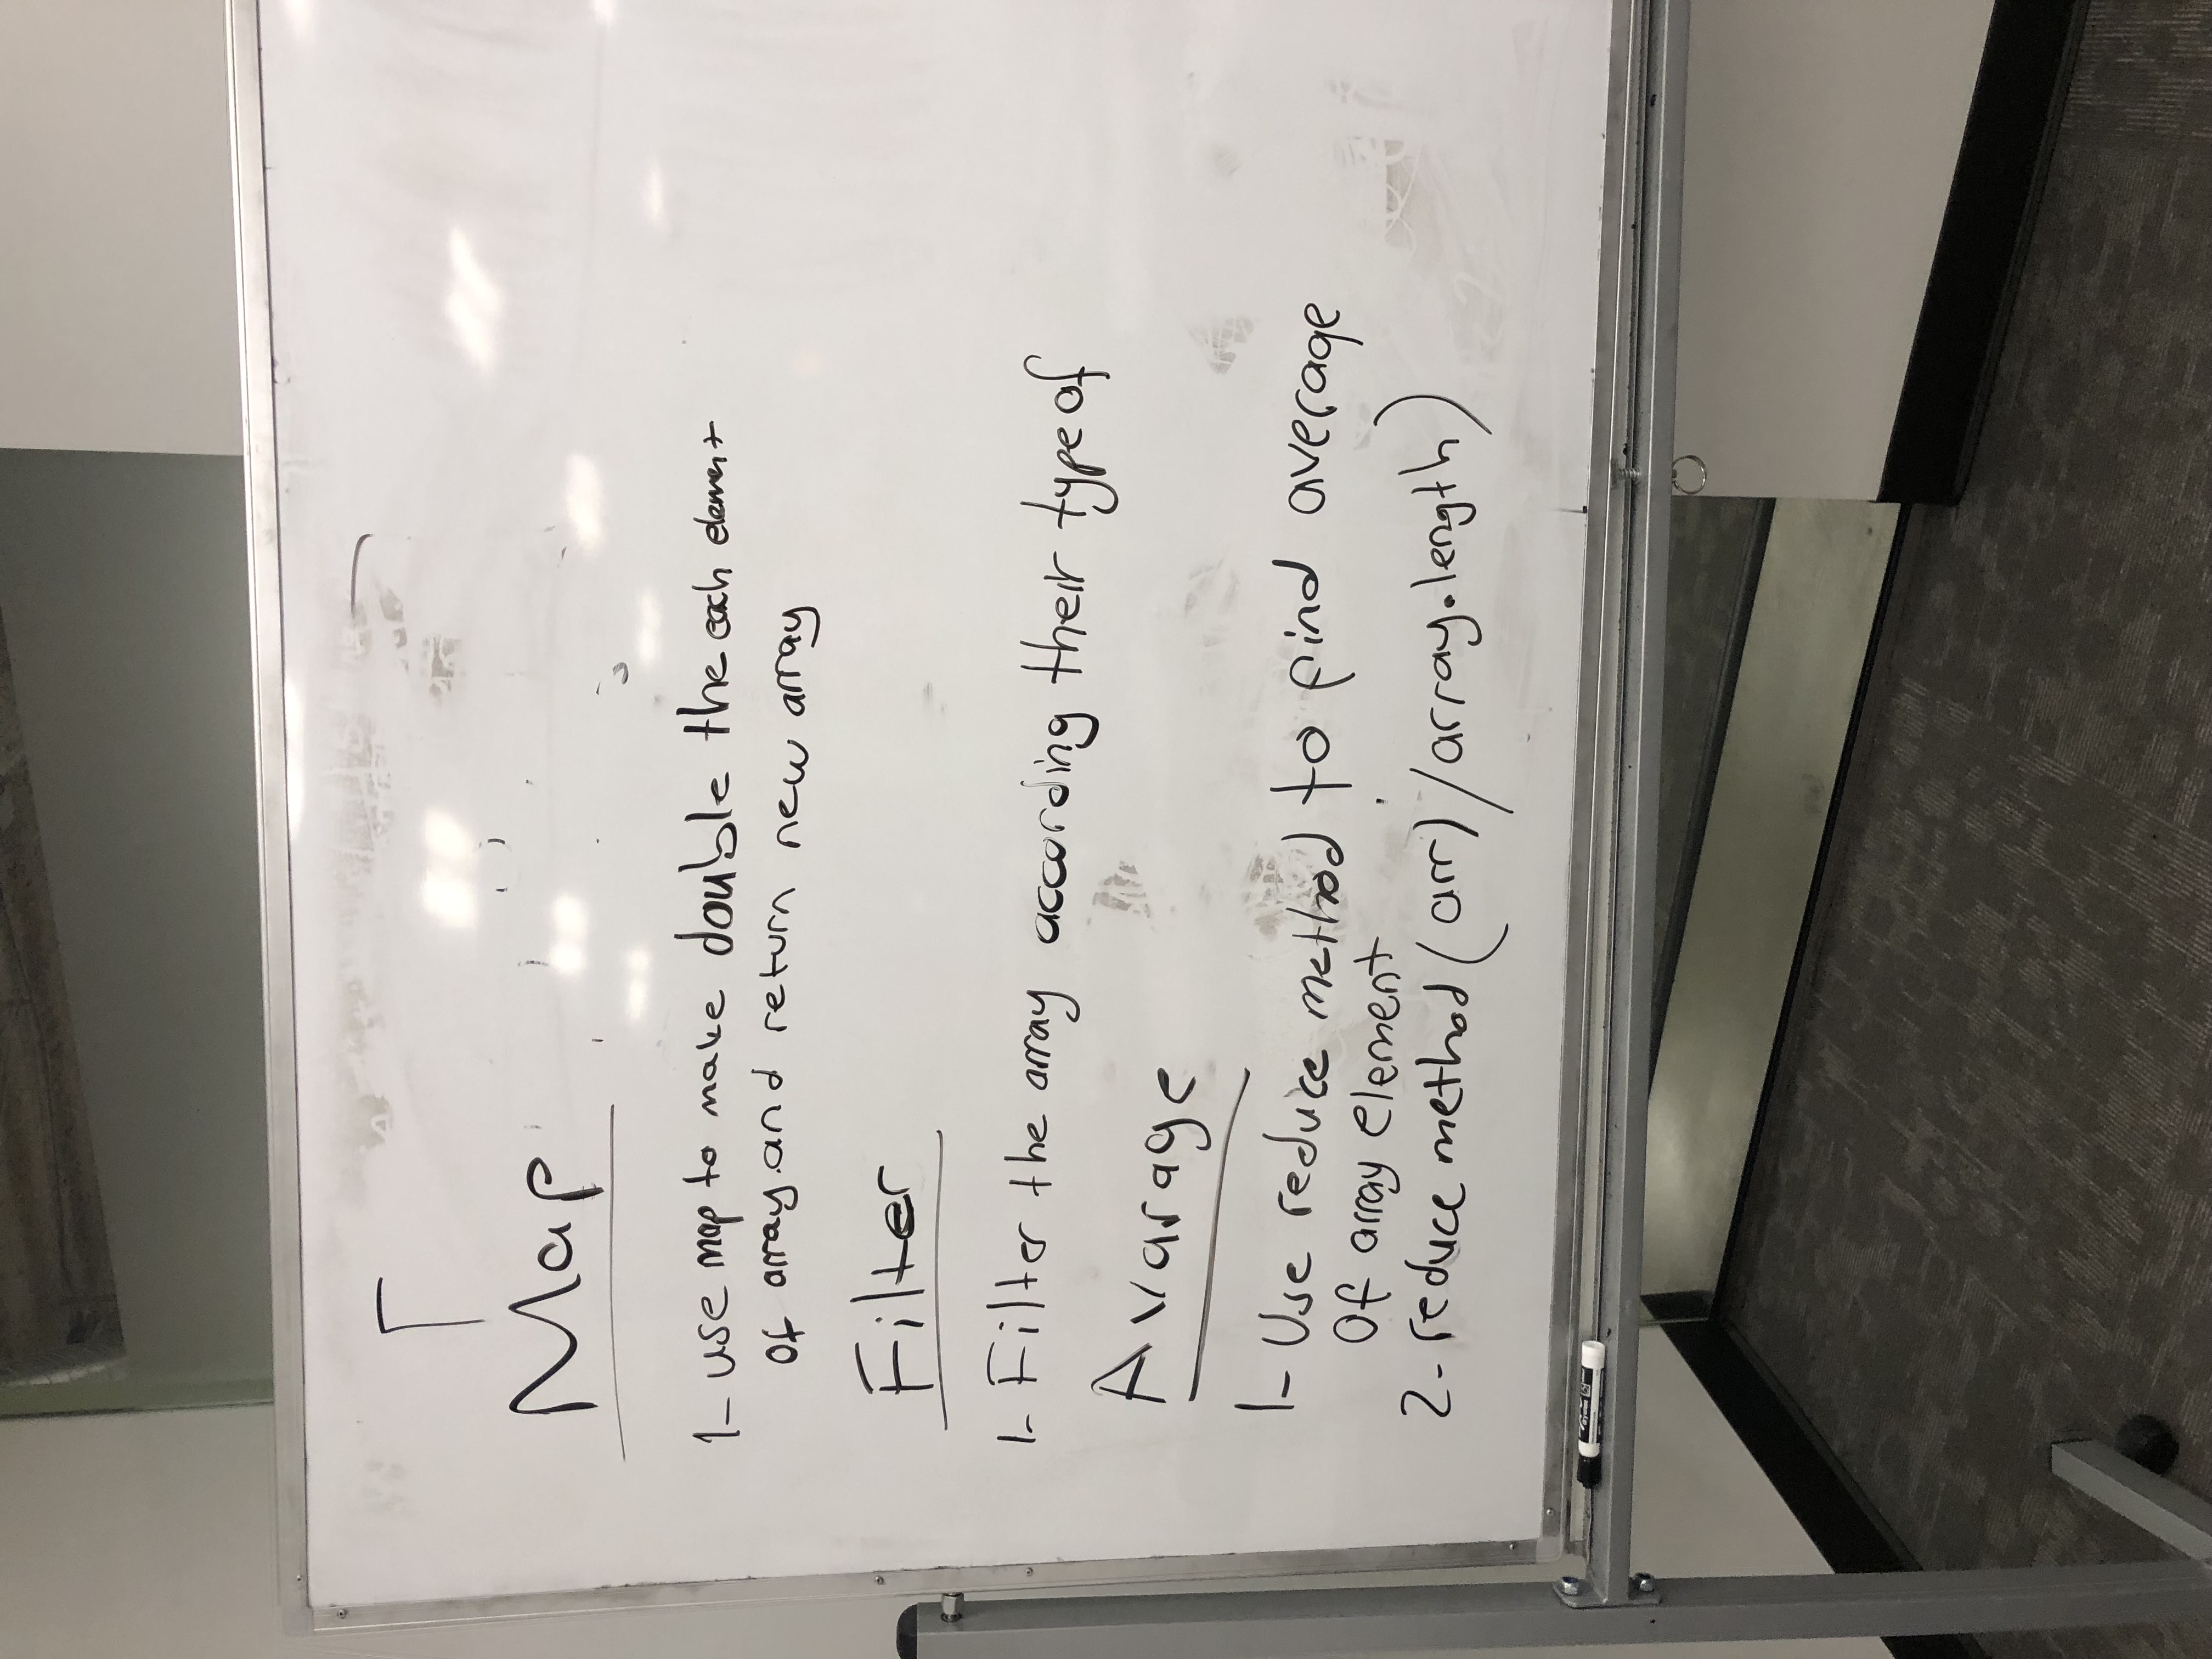 Map
1- use map to make double the each element
of array.and return new array
Filter
1- Filter the array according their type of
Avarage
1- Use reduce method to find average
Of array element
2- reduce method (arr) / array.length)